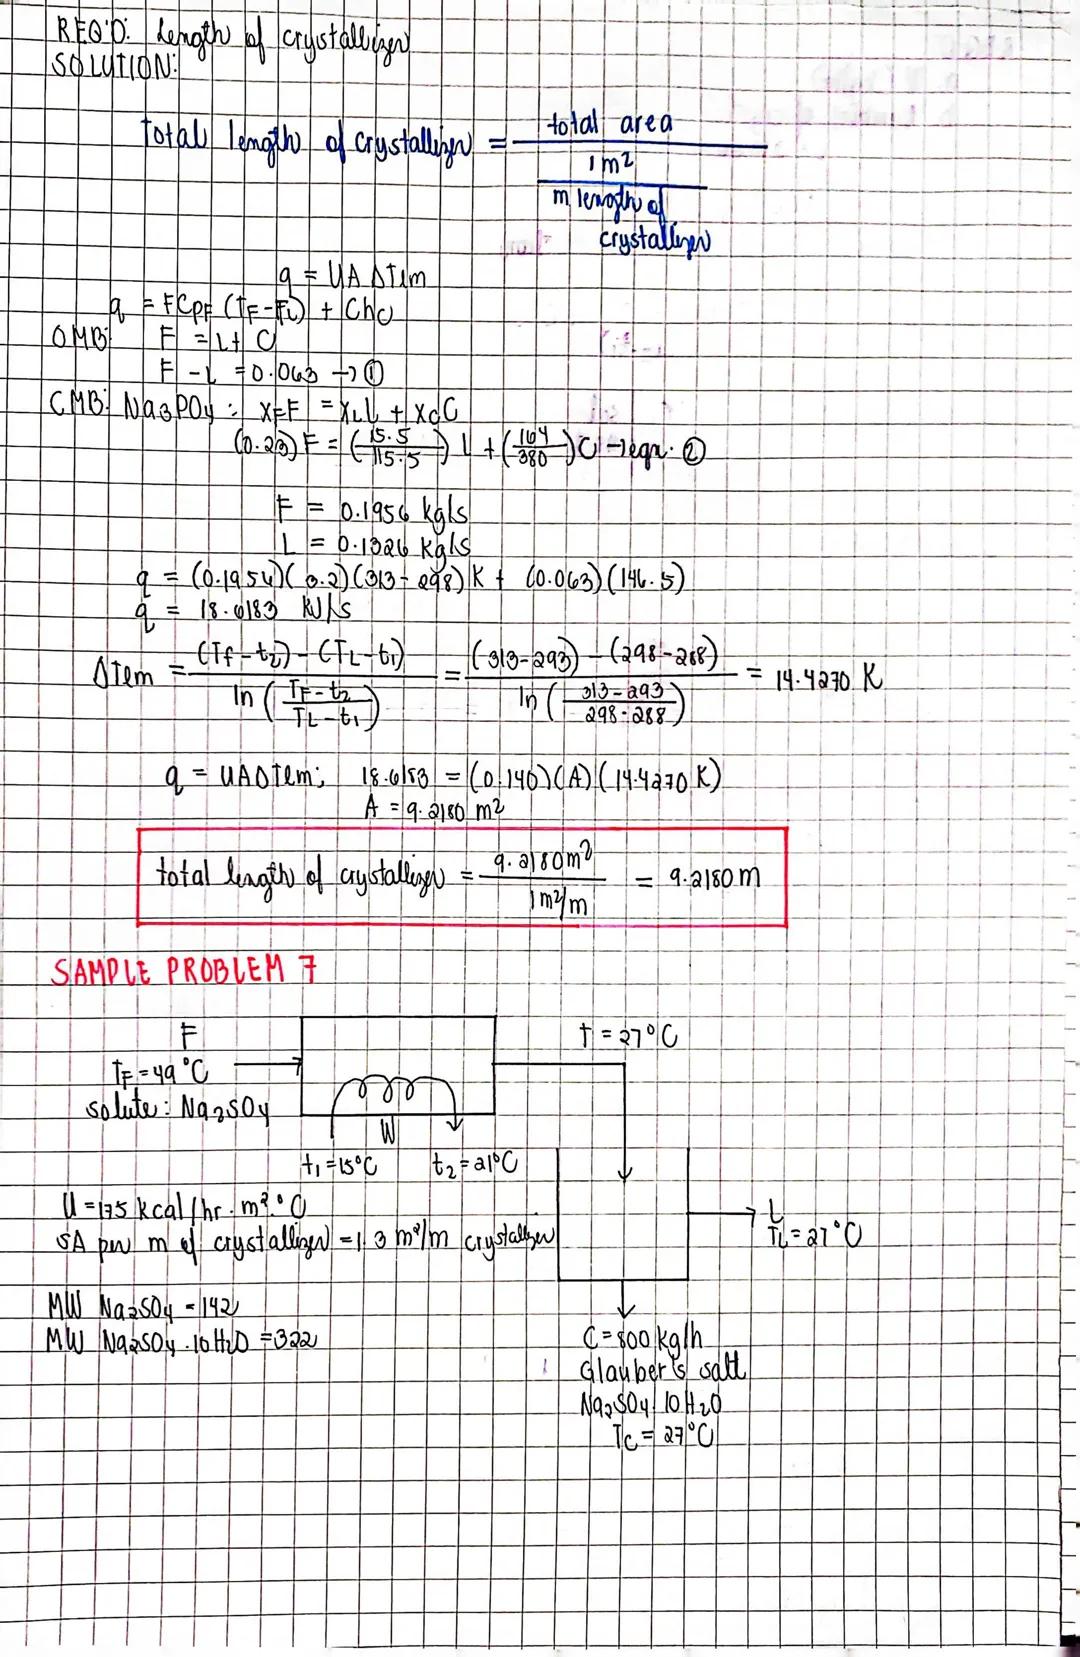 REQ'D: Length of crystallizer
SOLUTION:
Total length of crystallizer = total area
1 m²
m length of
crystallizer
q = UA ΔTlm
q = FCpF (TF-TL) + Chc
OMB: F = L + C
F - L = 0.063 → ①
CMB: Na3PO4: XFF = XLL + XCC
(0.23) F = (15.5/115.5) L + (164/380) C → eqn. ②
F = 0.1956 kg/s
L = 0.1326 kg/s
q = (0.1956)(3.2)(313-298)K + (0.063)(146.5)
q = 18.6183 kJ/s
ΔTlm = (Tf-t2)-(TL-t1) / ln (TF-t2 / TL-t1) = (313-293)-(298-288) / ln (313-293 / 298-288) = 14.4270 K
q = UAΔTlm; 18.6183 = (0.140)(A)(14.4270 K)
A = 9.2180 m²
total length of crystallizer = 9.2180 m² / 1 m²/m = 9.2180 m
SAMPLE PROBLEM 7
F
TF = 49 °C
solute: Na2SO4
t = 27°C
W
t1 = 15°C t2 = 21°C
U = 175 kcal/hr·m²·°C
SA per m of crystallizer = 1.3 m²/m crystallizer
L
TL = 27°C
MW Na2SO4 = 142
MW Na2SO4·10H2O = 322
C = 800 kg/h
Glauber's salt
Na2SO4·10H2O
TC = 27°C